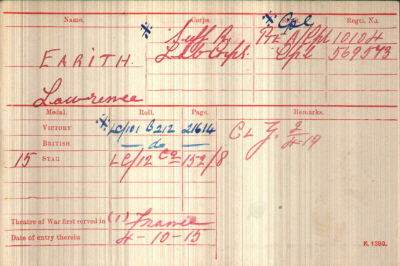 Name. Corps. Regtl. No.
* Cpl
EARITH. * Suff. R. Pte A/Cpl 10104
Lab Corps. Cpl 569573
Lawrence
Medal. Roll. Page. Remarks.
VICTORY * LC/101 B 212 21614
BRITISH — do —
15 STAR LC/12 C2 152/8
CL Z. 2/4-19
Theatre of War first served in (1) France
Date of entry therein 4-10-15
K. 1380.